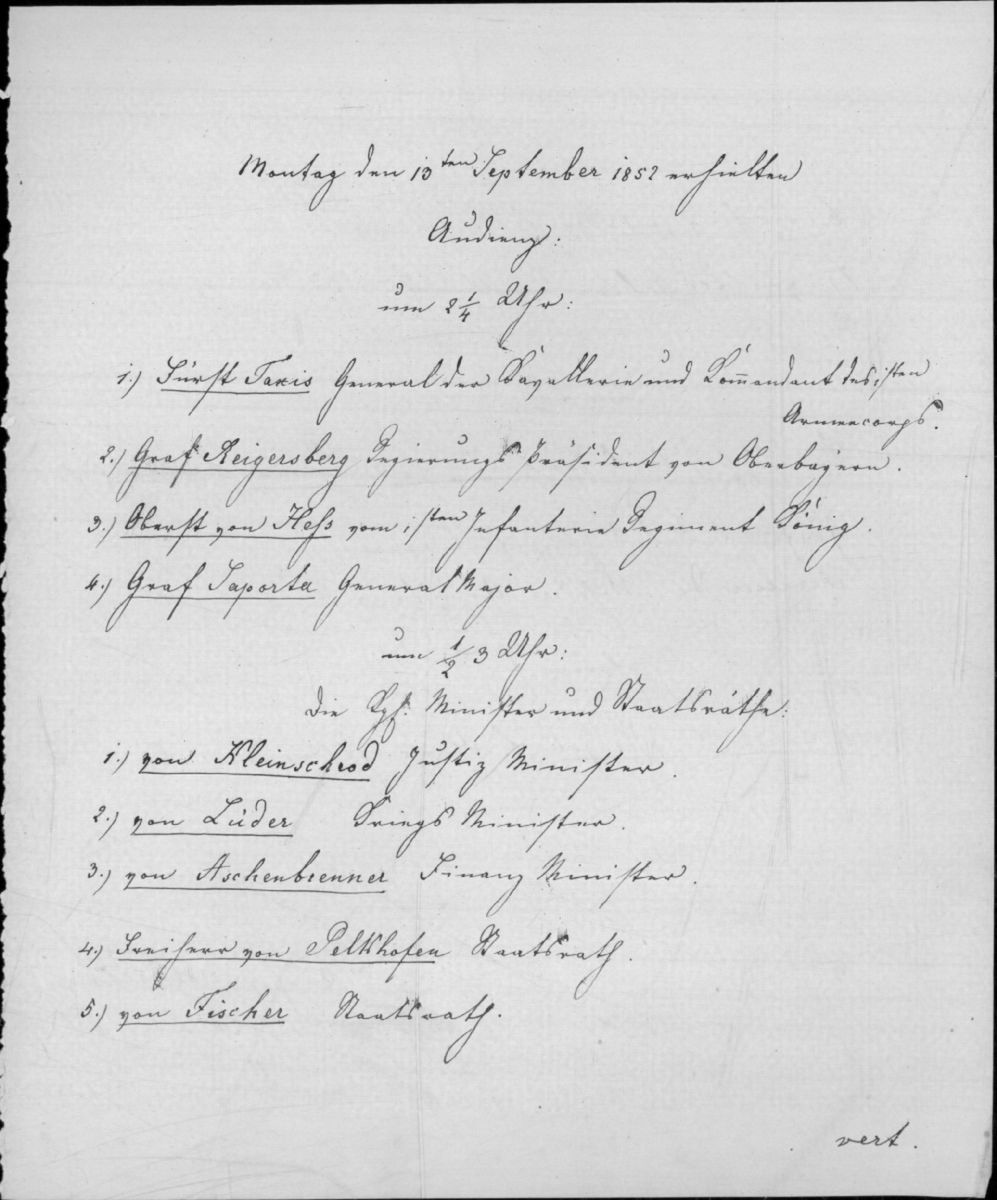 Montag den 13ten September 1852 erhielten
Audienz:
um 2 1/4 Uhr:
1.) Fürst Taxis General der Kavallerie und Kom̄andant des 1sten
Armeecorps.
2.) Graf Reigersberg Regierungs Präsident von Oberbayern.
3.) Oberst von Heß vom 1sten Infanterie Regiment König.
4.) Graf Saporta General Major.
um 1/2 3 Uhr:
Die Kgl. Minister und Staatsräthe:
1.) von Kleinschrod Justiz Minister.
2.) von Lüder Kriegs Minister.
3.) von Aschenbrenner Finanz Minister.
4.) Freiherr von Pelkhofen Staatsrath.
5.) von Fischer Staatsrath.
vert.